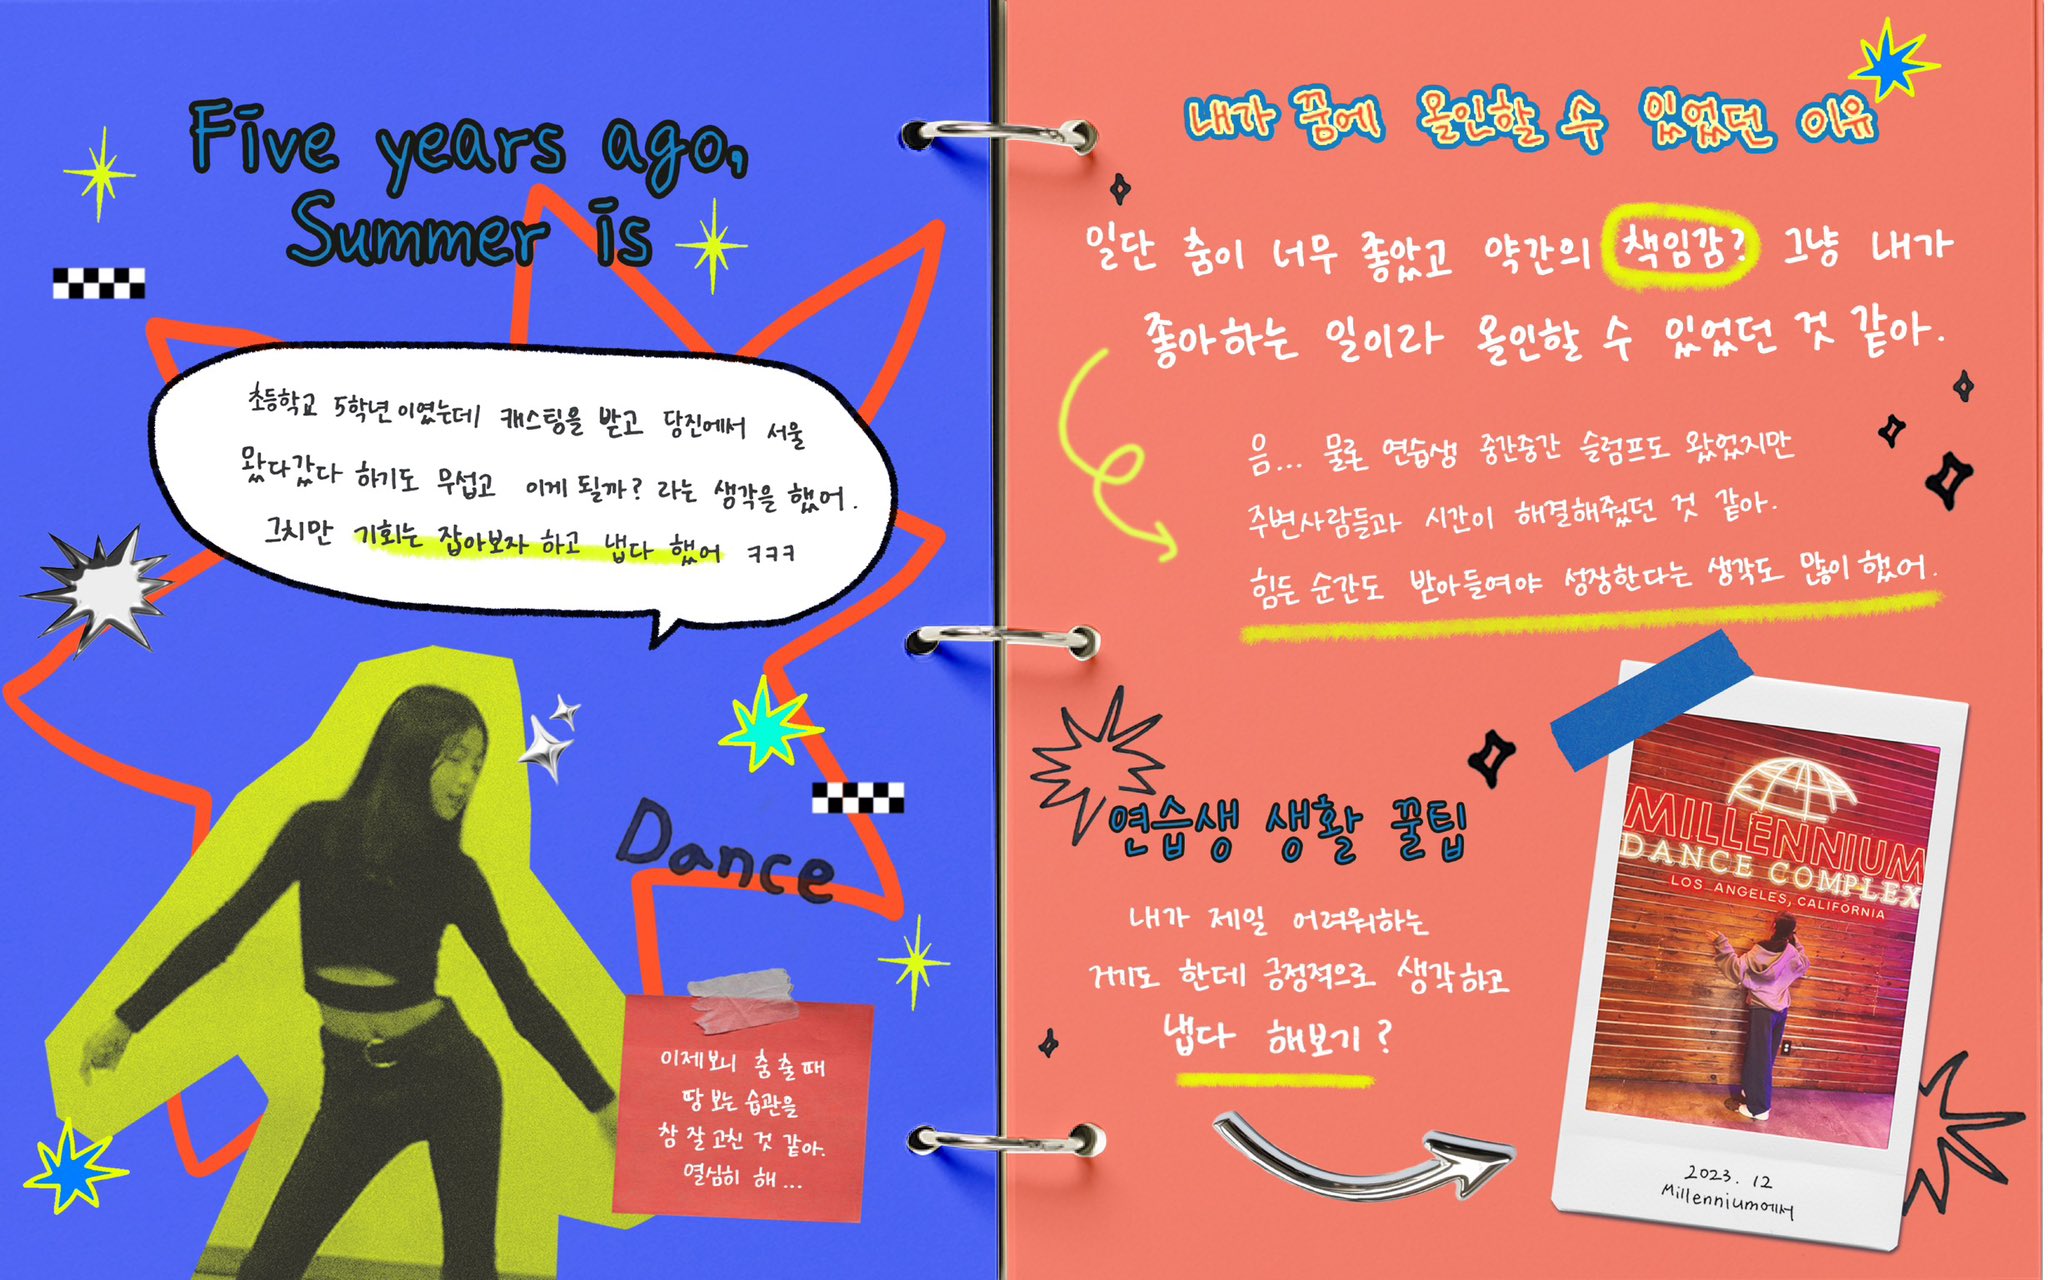 Five years ago,
Summer is
초등학교 5학년이였는데 캐스팅을 받고 당진에서 서울
왔다갔다 하기도 무섭고 이게 될까? 라는 생각을 했어.
그치만 기회는 잡아보자 하고 냅다 했어 ㅋㅋㅋ
Dance
이제보니 춤출때
땅 보는 습관을
참 잘 고친 것 같아.
열심히 해...
내가 꿈에 올인할 수 있었던 이유
일단 춤이 너무 좋았고 약간의 책임감? 그냥 내가
좋아하는 일이라 올인할 수 있었던 것 같아.
음... 물론 연습생 중간중간 슬럼프도 왔었지만
주변사람들과 시간이 해결해줬던 것 같아.
힘든 순간도 받아들여야 성장한다는 생각도 많이 했어.
연습생 생활 꿀팁
내가 제일 어려워하는
거기도 한데 긍정적으로 생각하고
냅다 해보기?
MILLENNIUM
DANCE COMPLEX
LOS ANGELES, CALIFORNIA
2023. 12
Millennium에서